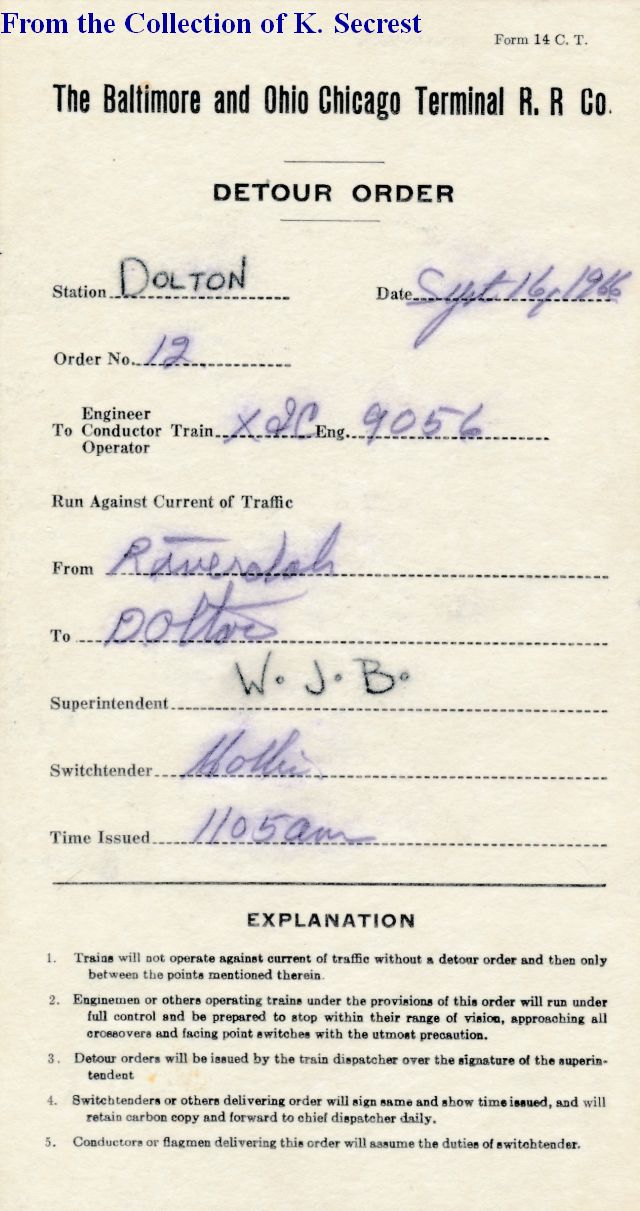 From the Collection of K. Secrest
Form 14 C. T.
The Baltimore and Ohio Chicago Terminal R. R Co.
DETOUR ORDER
Station DOLTON Date Sept 16, 1966
Order No. 12
Engineer
To Conductor Train X Eng. 9056
Operator
Run Against Current of Traffic
From Riverdale
To Dolton
W. J. B.
Superintendent
Switchtender
Time Issued 1105 am
EXPLANATION
1. Trains will not operate against current of traffic without a detour order and then only
between the points mentioned therein.
2. Enginemen or others operating trains under the provisions of this order will run under
full control and be prepared to stop within their range of vision, approaching all
crossovers and facing point switches with the utmost precaution.
3. Detour orders will be issued by the train dispatcher over the signature of the superin-
tendent
4. Switchtenders or others delivering order will sign same and show time issued, and will
retain carbon copy and forward to chief dispatcher daily.
5. Conductors or flagmen delivering this order will assume the duties of switchtender.